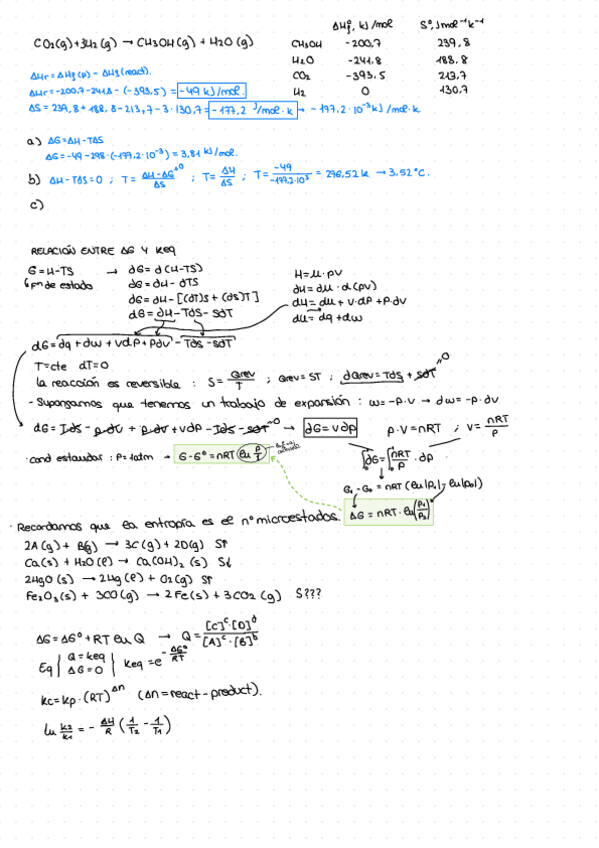 ΔHf°, kJ/mol    S°, J mol⁻¹ K⁻¹
CO2(g)+3H2(g) → CH3OH(g) + H2O(g)
CH3OH    -200,7    239,8
H2O    -241.8    188.8
CO2    -393.5    213,7
H2    0    130.7
ΔHr = ΔHf(p) - ΔHf(react).
ΔHr = -200,7-241,8 - (-393,5) = -49 kJ/mol.
ΔS = 239,8 + 188,8 - 213,7 - 3·130,7 = -177,2 J/mol·K → -177,2·10⁻³ kJ/mol·K
a) ΔG=ΔH-TΔS
ΔG=-49-298·(-177,2·10⁻³) = 3,81 kJ/mol.
b) ΔH-TΔS=0 ; T = (ΔH-ΔG^0)/ΔS ; T = ΔH/ΔS ; T = -49/-177,2·10³ = 276,52 K → 3.52°C.
c)
RELACIÓN ENTRE ΔG Y Keq
G=H-TS → dG= d(H-TS)
↳ fn de estado    dG= dH - dTS
dG= dH - [(dT)S + (dS)T]
dG = dH - TdS - SdT
H=μ·pV
dH=dμ·d(pV)
dH = dμ + V·dP + P·dV
dμ = dq + dw
dG=dq + dw + Vdp + pdV - TdS - SdT
T=cte dT=0
la reacción es reversible : S = Qrev/T ; Qrev= ST ; dQrev=TdS + SdT^0
- Supongamos que tenemos un trabajo de expansión : w=-p·V → dw=-p·dV
dG = TdS - p·dV + p·dV + Vdp - TdS - SdT^0 → dG = Vdp    p·V=nRT ; V = nRT/P
· cond estandar : P=1atm → G-G° = nRT ln P/1
∫dG=∫nRT/P · dp
G1-G0 = nRT (ln|P1|-ln|P0|)
ΔG = nRT·ln(P1/P0)
· Recordamos que la entropía es el nº microestados.
2A(g) + B(g) → 3C(g) + 2D(g) S↑
Ca(s) + H2O(l) → Ca(OH)2 (s) S↓
2HgO (s) → 2Hg (l) + O2(g) S↑
Fe2O3(s) + 3CO(g) → 2Fe(s) + 3CO2 (g) S???
ΔG=ΔG° + RT ln Q → Q = [C]^c·[D]^d/[A]^c·[B]^b
Eq | Q = Keq ΔG=0 | Keq = e^(-ΔG°/RT)
Kc=Kp·(RT)^Δn (Δn=react-product).
ln K2/K1 = - ΔH/R (1/T2 - 1/T1)